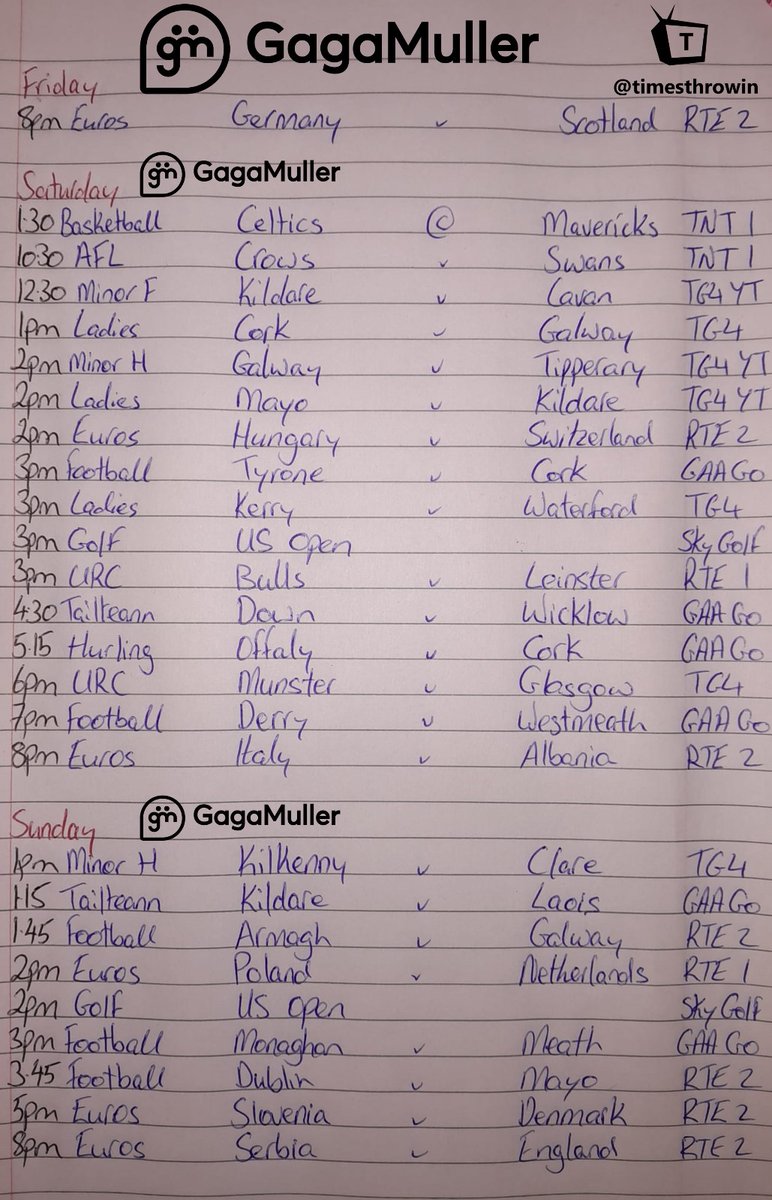 GagaMuller
T
@timesthrowin
Friday
8pm Euros Germany v Scotland RTE 2
Saturday GagaMuller
1:30 Basketball Celtics @ Mavericks TNT 1
10:30 AFL Crows v Swans TNT 1
12:30 Minor F Kildare v Cavan TG4 YT
1pm Ladies Cork v Galway TG4
2pm Minor H Galway v Tipperary TG4 YT
2pm Ladies Mayo v Kildare TG4 YT
2pm Euros Hungary v Switzerland RTE 2
3pm Football Tyrone v Cork GAA Go
3pm Ladies Kerry v Waterford TG4
3pm Golf US Open Sky Golf
3pm URC Bulls v Leinster RTE 1
4:30 Tailteann Down v Wicklow GAA Go
5.15 Hurling Offaly v Cork GAA Go
6pm URC Munster v Glasgow TG4
7pm Football Derry v Westmeath GAA Go
8pm Euros Italy v Albania RTE 2
Sunday GagaMuller
1pm Minor H Kilkenny v Clare TG4
1:15 Tailteann Kildare v Laois GAA Go
1.45 Football Armagh v Galway RTE 2
2pm Euros Poland v Netherlands RTE 1
2pm Golf US Open Sky Golf
3pm Football Monaghan v Meath GAA Go
3.45 Football Dublin v Mayo RTE 2
5pm Euros Slovenia v Denmark RTE 2
8pm Euros Serbia v England RTE 2